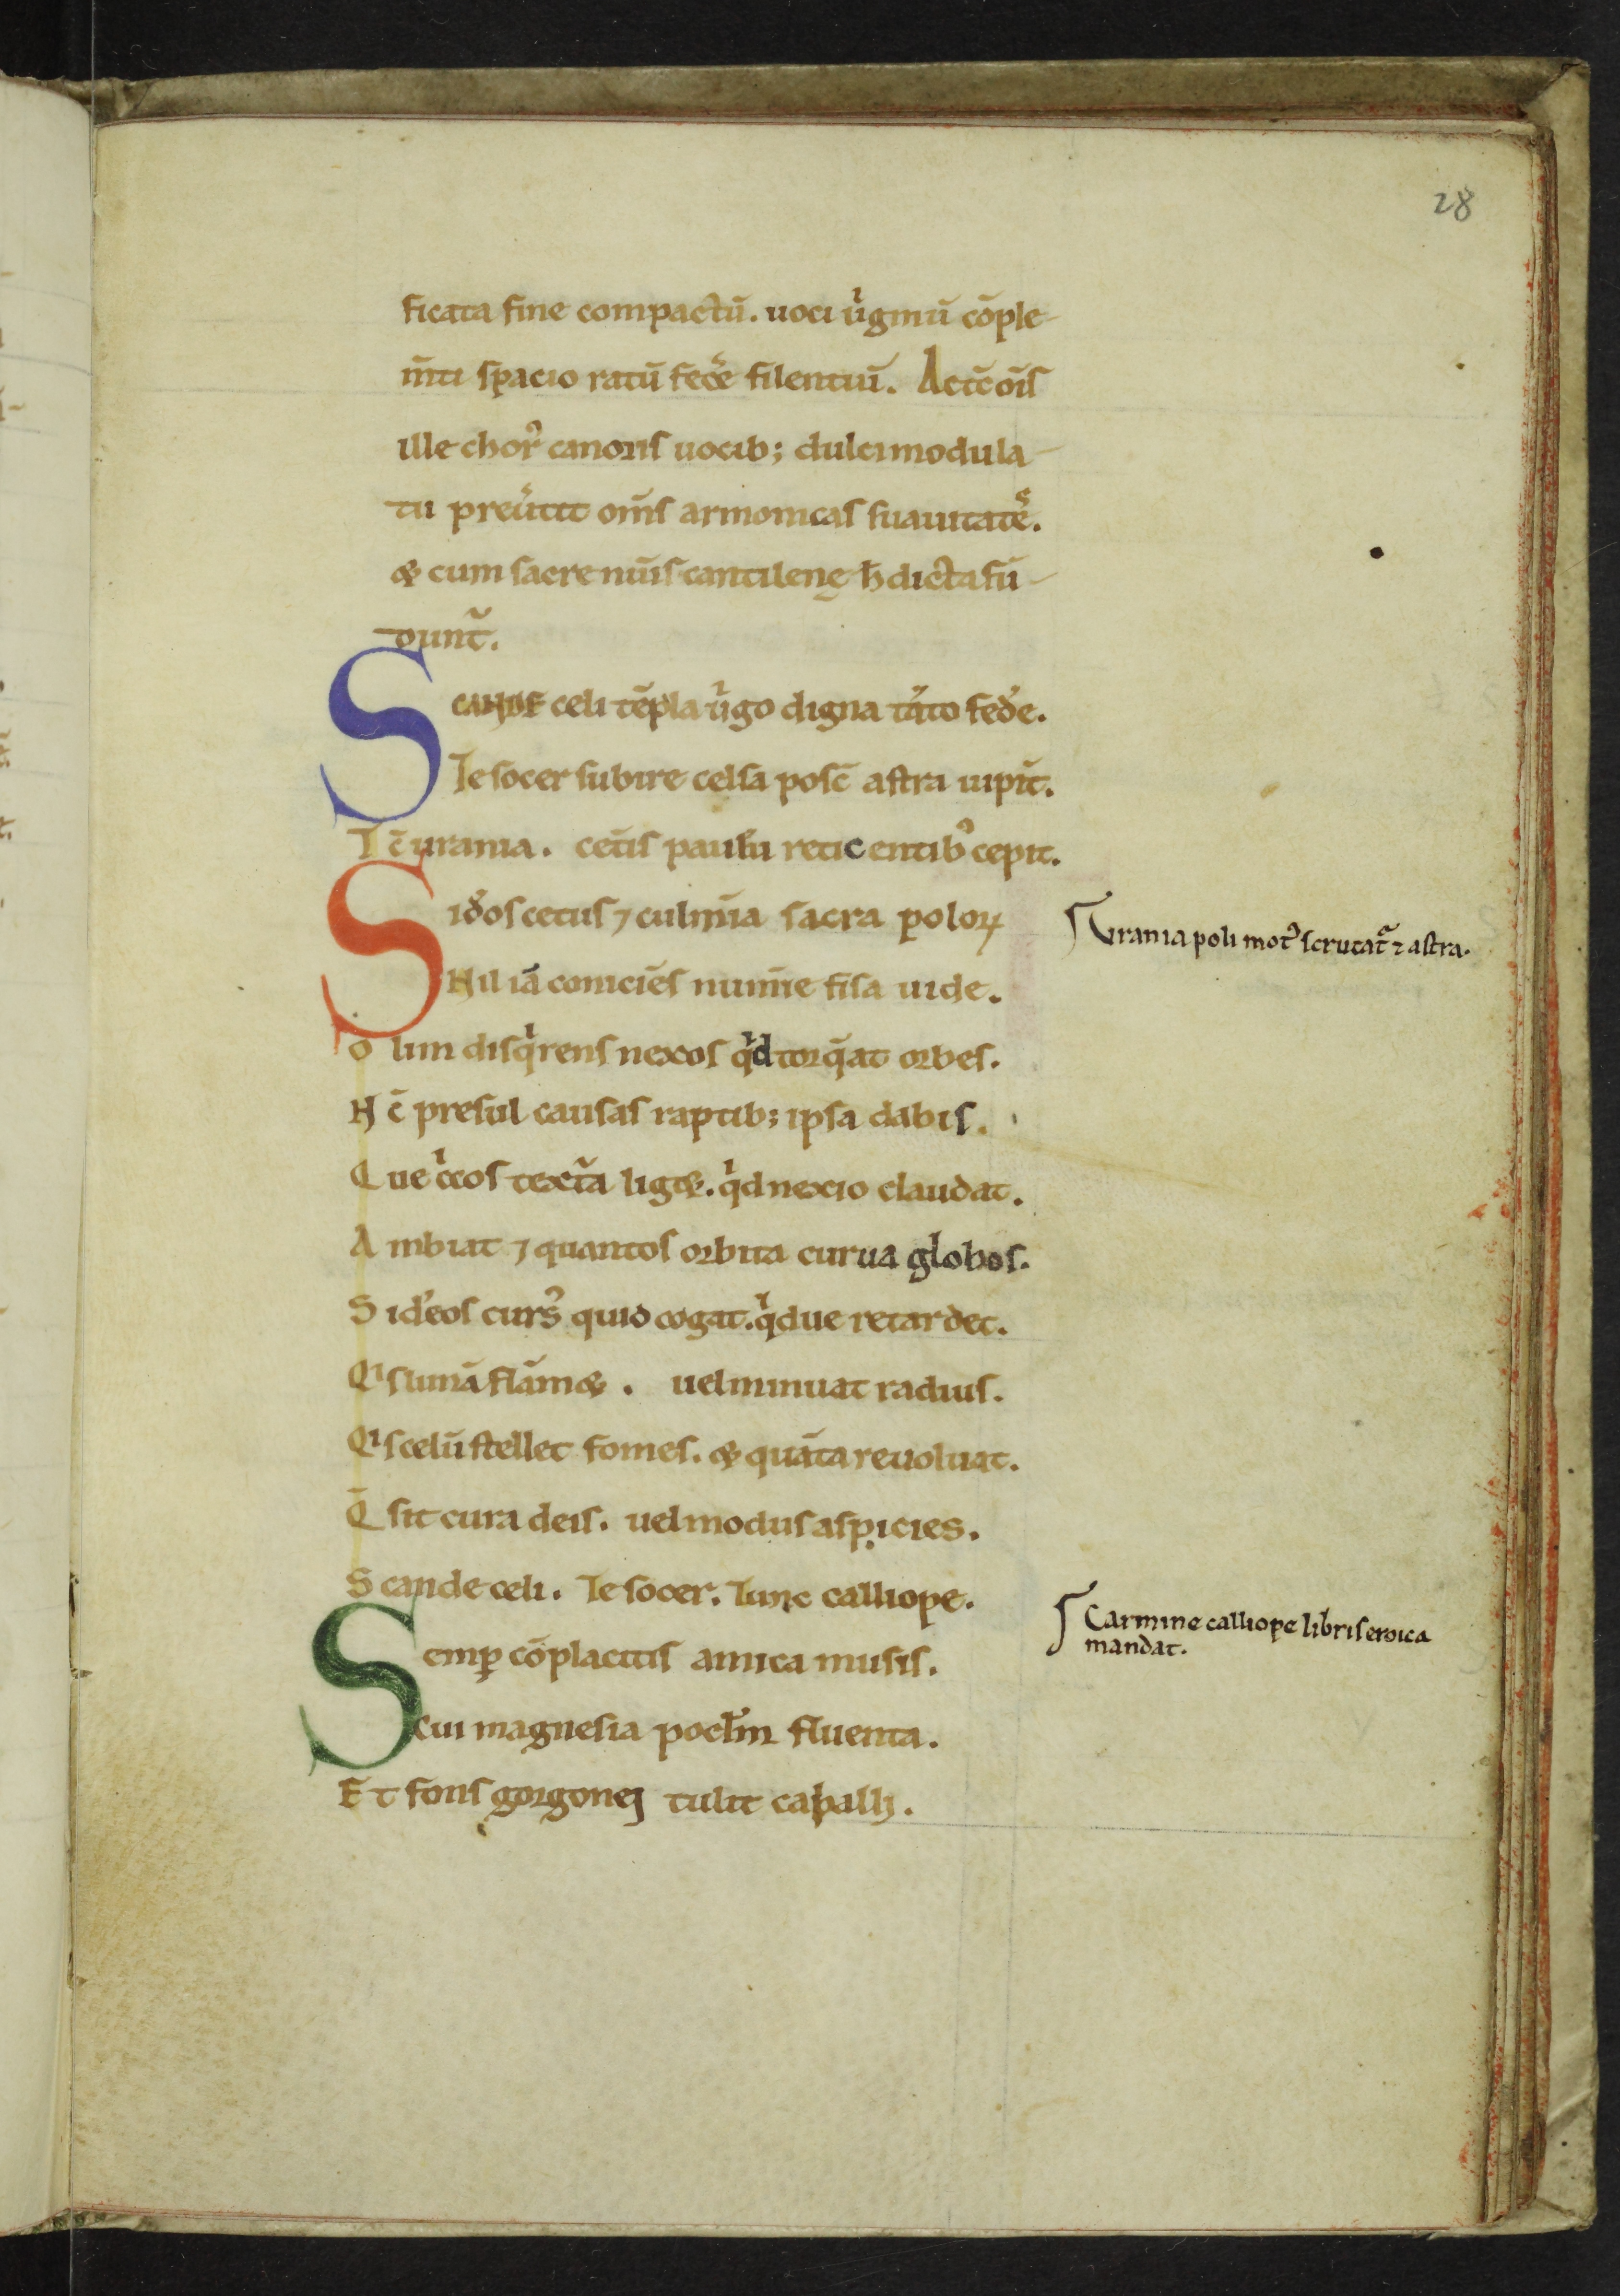 28
ficata fine compactū. uoci ůgınū cōple-
m̄ti spacio ratū fecē silentiū. Act̄c oīs
ille chor᷒ canoris uocib; dulci modula-
tu preūtit om̄s armonicas suauitatē.
& cum sacre nūis cantilenę h̄ dicta fū-
dunt᷑.
SCANDE celi tēpla ůgo digna tāto fedʼe.
Te socer subire celsa posc̄ astra iupit̄.
Tc̄ urania. cet̄is paulu reticentib᷒ cepit.
Sidʼos cetus ⁊ culmīa sacra poloꝝ
Nil iā coniciēs numīe fisa uide.
Olim disqͥrens nexos qͥd torq̄at orbes.
Nc̄ presul causas raptib; ipsa dabis.
Que cͥcos text᷑a liget. qͥd nexio claudat.
Ambiat ⁊ quantos orbita curua globos.
Sidʼeos curs᷒ quid cogat. qͥdue retardet.
Qͥs lunā flām&. uel minuat radius.
Qͥs celū stellet fomes. & quāta reuoluat.
Q̄ sit cura deis. uel modus aspicies.
Scande celi. Te socer. Tunc calliope.
Semꝑ cōplacitis amica musis.
Cui magnesia poclʼm fluenta.
Et fons gorgonei tulit caballi.
Urania poli mot᷒ scrutat᷑ ⁊ astra.
Carmine calliope libris eroica
mandat.